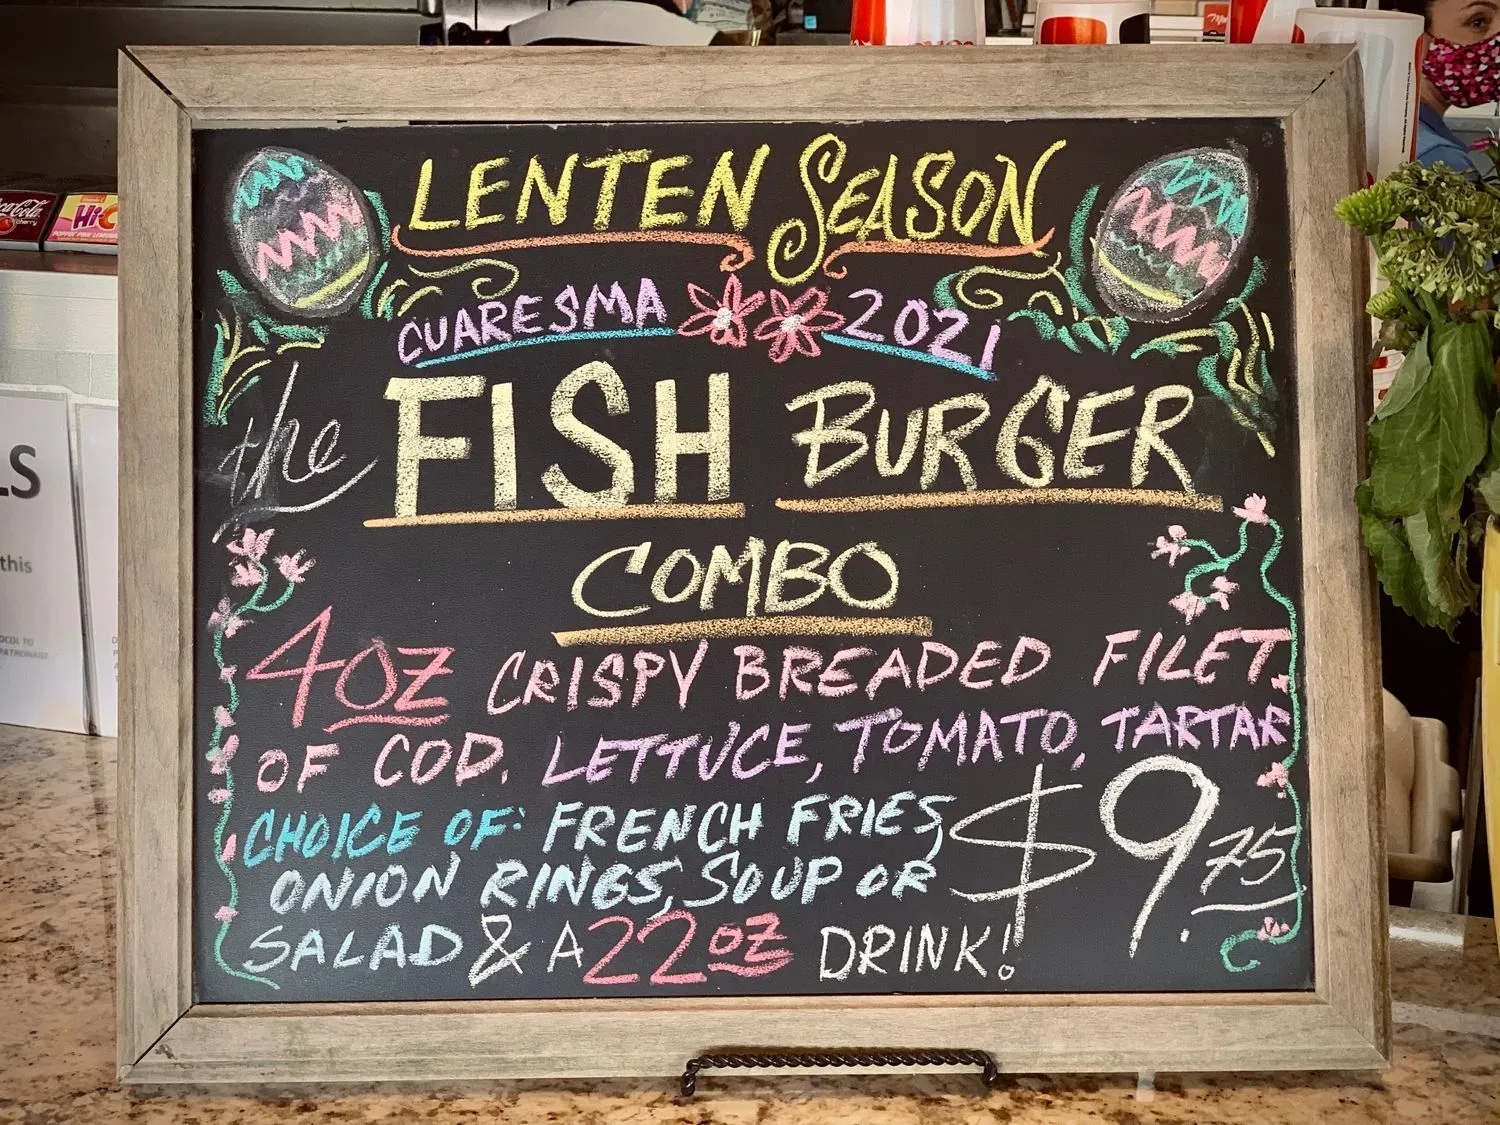 LENTEN SEASON
CUARESMA 2021
the FISH BURGER
COMBO
4oz CRISPY BREADED FILET
OF COD. LETTUCE, TOMATO, TARTAR
CHOICE OF: FRENCH FRIES,
ONION RINGS, SOUP OR
SALAD & A 22oz DRINK!
$9.75
Coca-Cola
cherry
Hi-C
LS
this